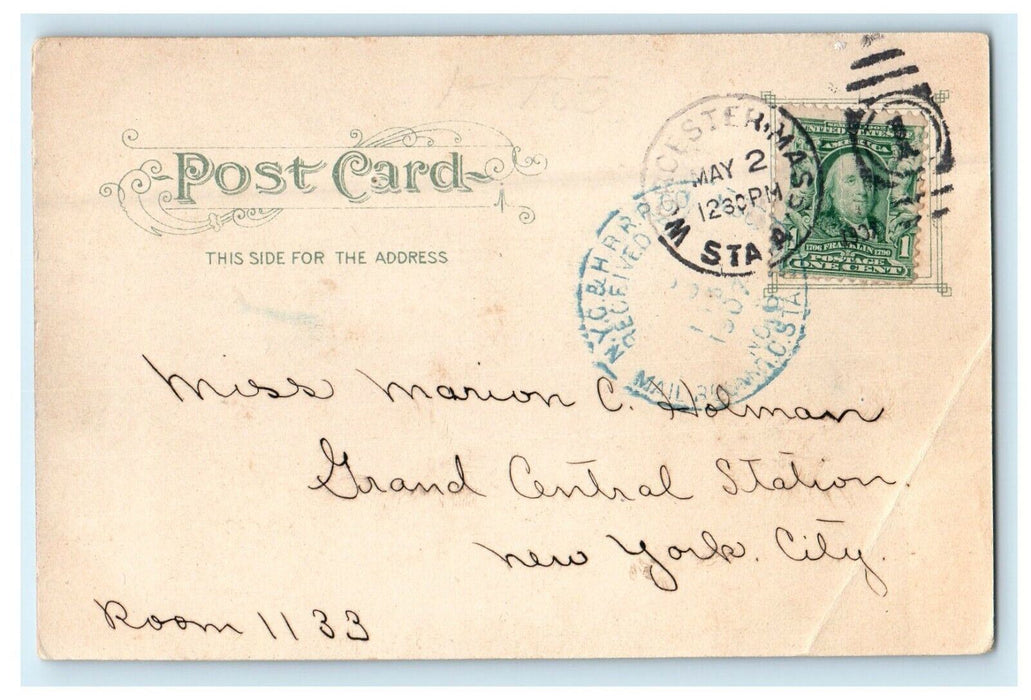 Post Card
THIS SIDE FOR THE ADDRESS
WORCESTER, MASS.
MAY 2
1230PM
STA.
N.Y.C. & H.R.R.R. CO.
RECEIVED
1907
MAIL
UNITED STATES OF
AMERICA
1 1
1706 FRANKLIN 1790
POSTAGE
ONE CENT
Miss Marion C. Holman
Grand Central Station.
New York. City.
Room 1133